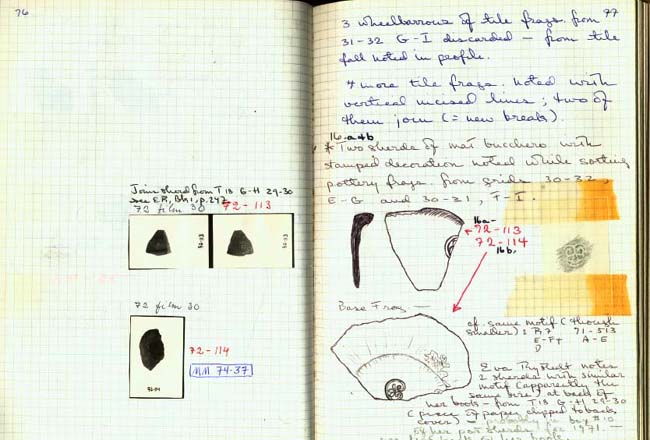 76
Join sherd from T18 G-H 29-30
see ER, Bk 1, p. 247
72 film 30
72-113
72 film 30
72-114
MM 74-37
77
3 wheelbarrows of tile frags. from
31-32 G-I discarded — from tile
fall noted in profile.
4 more tile frags. noted with
vertical incised lines; two of
them join (= new breaks).
16.a+b
* Two sherds of mat bucchero with
stamped decoration noted while sorting
pottery frags. from grids 30-32,
E-G and 30-31, F-I.
16a-
72-113
72-114
16b.
Base Frag —
cf. same motif (though
smaller): R7 71-513
E-F+ A-E
D
Eva Rystedt notes
2 sherds with similar
motif (apparently the
same size) at back of
her book - from T18 G-H 29-30
(piece of paper clipped to back
cover) — probably in box #10
of her pot sherds for 1971 —